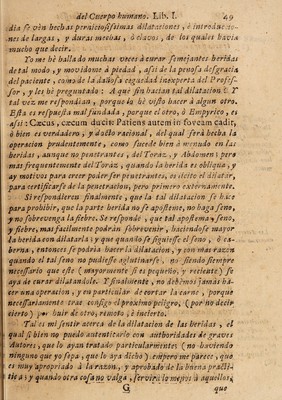 del Cuerpo humano. Lib. I. 49
dia se vèn hechas perniciosissimas dilataciones, è introduccio-
nes de largas, y duras mechas, ò clavos, de los quales havia
mucho que decir.
Yo me hè hallado muchas veces à curar semejantes heridas
de tal modo, y movidome à piedad, assi de la penosa desgracia
del paciente, como de la dañosa ceguedad inexperta del Profes-
sor, y les hè preguntado: A què fin hacian tal dilatacion? Y
tal vez me respondian, porque lo hè visto hacer à algun otro.
Esta es respuesta mal fundada, porque el otro, ò Empyrico, es
assi: Cæcus, cæcum ducit: Patiens autem in foveam cadit,
ò bien es verdadero, y docto racional, del qual serà hecha la
operacion prudentemente, como sucede bien à menudo en las
heridas, aunque no penetrantes, del Torax, y Abdomen; pero
mas frequentemente del Torax, quando la herida es obliqua, y
ay motivos para creer poder ser penetrantes, es licito el dilatar,
para certificarse de la penetracion, pero primero externamente.
Si respondieren finalmente, que la tal dilatacion se hace
para prohibir, que la parte herida no se aposteme, no haga seno,
y no sobrevenga la fiebre. Se responde, que tal apostema, seno,
y fiebre, mas facilmente podràn sobrevenir, haciendose mayor
la herida con dilatarla; y que quando se siguiesse el seno, ò ca-
berna, entonces se podria hacer la dilatacion, y con mas razon
quando el tal seno no pudiesse aglutinarse, no siendo siempre
necessario que este (mayormente si es pequeño, y reciente) se
aya de curar dilatandole. Y finalmente, no debèmos jamàs ha-
cer una operacion, y en particular de cortar la carne, porque
necessariamente trae consigo el proximo peligro, (por no decir
cierto) por huir de otro, remoto, è incierto.
Tal es mi sentir acerca de la dilatacion de las heridas, el
qual si bien no puedo autenticarlo con authoridades de graves
Autores, que lo ayan tratado particularmente (no haviendo
ninguno que yo sepa, que lo aya dicho) empero me parece, que
es muy apropriado à la razon, y aprobado de la buena practi-
ca; y quando otra cosa no valga, servirà lo menos à aquellos,
G que